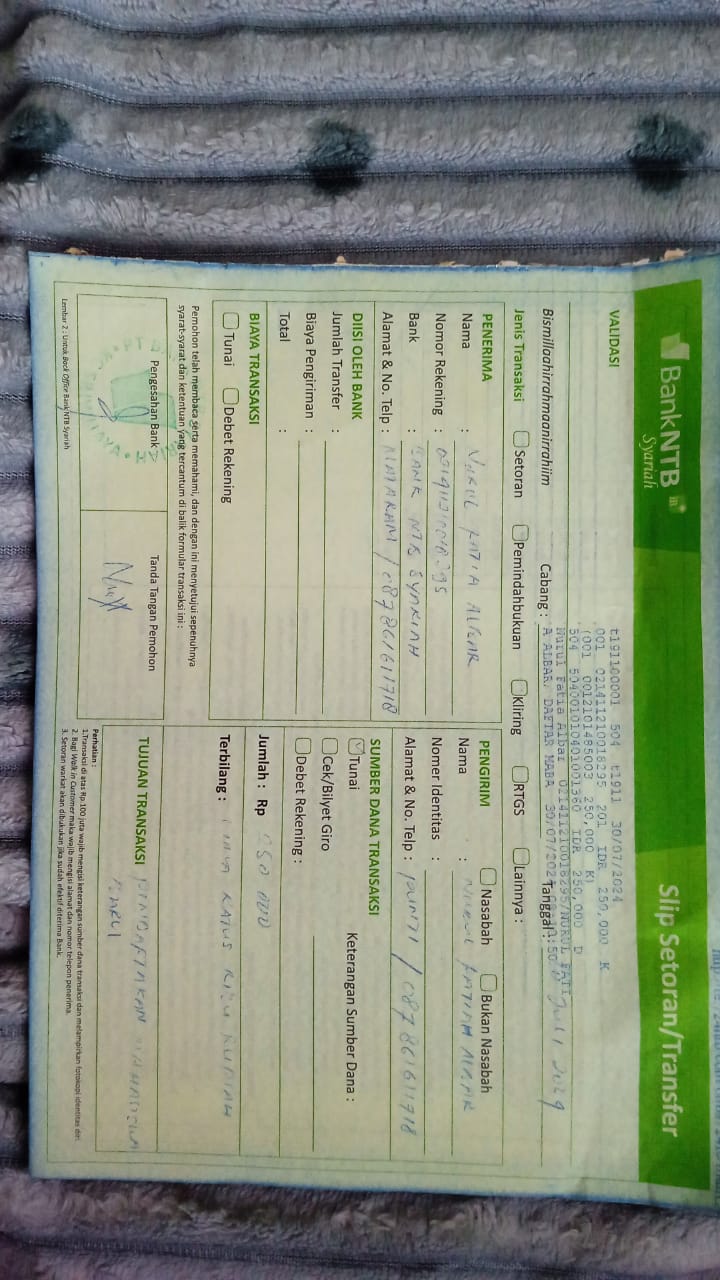 BankNTB
Syariah
Slip Setoran/Transfer
VALIDASI
t191100001 504 t1911 30/07/2024
001 021411210018295 201 IDR 250,000 K
(001 0012101495003 250,000 K)
504 504001010401001360 IDR 250,000 D
Nurul Fatia Albar 021411210018295/NURUL FATI
A ALBAR/ DAFTAR MABA 30/07/2024
Bismillaahirrahmaanirrahiim
Cabang :
Tanggal : Juli 2024
Jenis Transaksi Setoran Pemindahbukuan Kliring RTGS Lainnya :
PENERIMA
Nama : NURUL FATIA ALBAR
Nomor Rekening :
Bank : BANK NTB SYARIAH
Alamat & No. Telp : MATARAM / 087861611718
PENGIRIM Nasabah Bukan Nasabah
Nama : NURUL FATIAH ALBAR
Nomer Identitas :
Alamat & No. Telp : / 087861611718
DIISI OLEH BANK
Jumlah Transfer :
Biaya Pengiriman :
Total :
SUMBER DANA TRANSAKSI
Tunai Keterangan Sumber Dana :
Cek/Bilyet Giro
Debet Rekening :
BIAYA TRANSAKSI
Tunai Debet Rekening
Jumlah : Rp 250 000
Terbilang : RATUS RIBU RUPIAH
Pemohon telah membaca serta memahami, dan dengan ini menyetujui sepenuhnya
syarat-syarat dan ketentuan yang tercantum di balik formular transaksi ini :
Pengesahan Bank
Tanda Tangan Pemohon
TUJUAN TRANSAKSI PENDAFTARAN MAHASISWA
BARU
Perhatian :
1.Transaksi di atas Rp.100 juta wajib mengisi keterangan sumber dana transaksi dan melampirkan fotokopi identitas diri.
2. Bagi Walk in Customer maka wajib mengisi alamat dan nomor telepon penerima.
3. Setoran warkat akan dibukukan jika sudah efektif diterima Bank.
Lembar 2 : Untuk Back Office Bank NTB Syariah